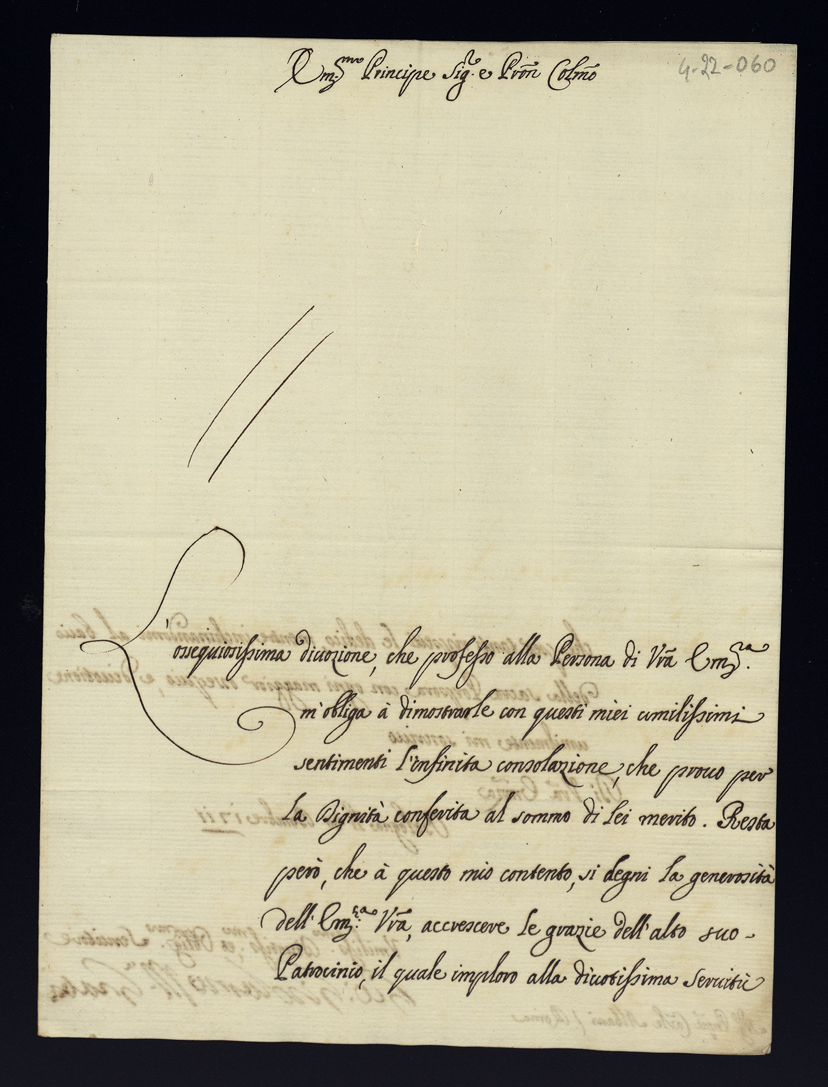 Em.mo Principe Sig.r e Pron Colmo
4-22-060
L'ossequiosissima divozione, che professo alla Persona di Vra Em.za
m'obliga à dimostrarle con questi miei umilissimi
sentimenti l'infinita consolazione, che provo per
la Dignità conferita al sommo di Lei merito. Resta
però, che à questo mio contento, si degni la generosità
dell'Em.za Vra, accrescere le grazie dell'alto suo
Patrocinio, il quale imploro alla divotissima servitù